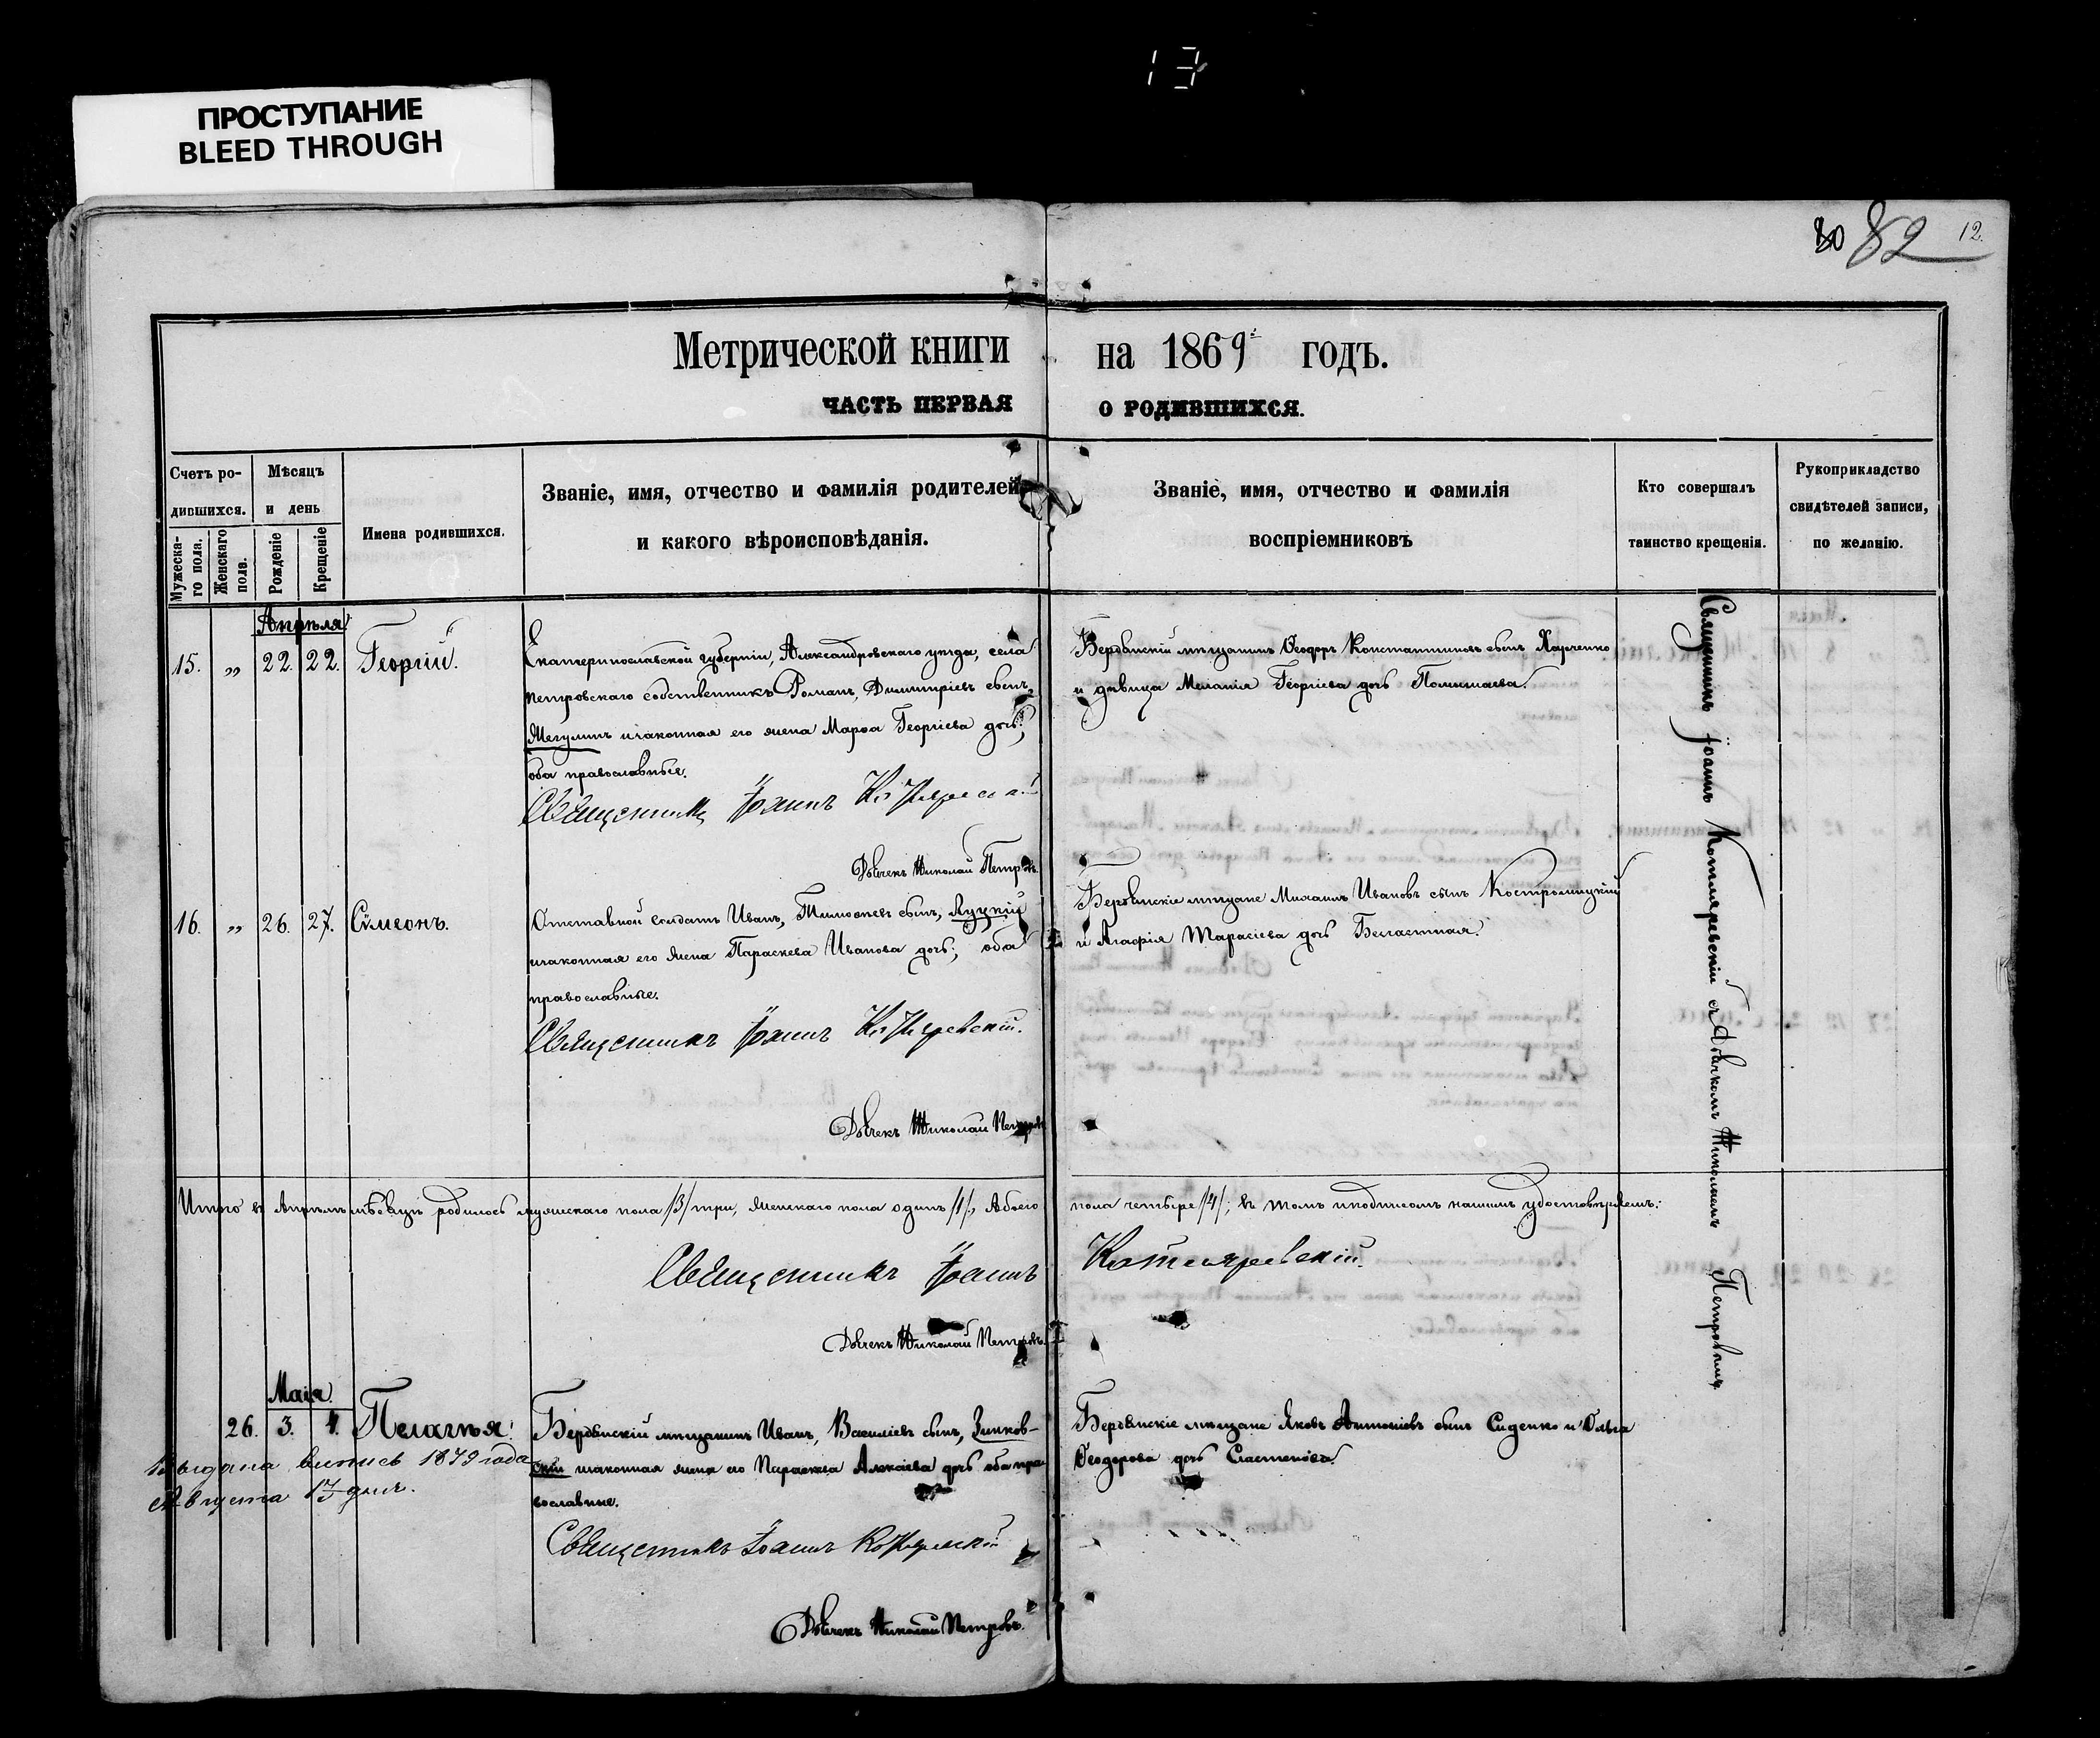 13
ПРОСТУПАНИЕ
BLEED THROUGH
30 82 12.
Метрической книги на 1869 годъ.
ЧАСТЬ ПЕРВАЯ О РОДИВШИХСЯ.
Счетъ ро-
дившихся.
Мужеска-
го пола.
Женскаго
пола.
Мѣсяцъ
и день
Рожденіе
Крещеніе
Имена родившихся.
Званіе, имя, отчество и фамилія родителей
и какого вѣроисповѣданія.
Званіе, имя, отчество и фамилія
воспріемниковъ
Кто совершалъ
таинство крещенія.
Рукоприкладство
свидѣтелей записи,
по желанію.
Апрѣля
15. „ 22. 22. Георгій.
Екатеринославской губерніи, Александровскаго уѣзда, села
Петровскаго собственникъ Романъ, Димитріевъ сынъ,
изаконная его жена Марѳа Георгіева дочь;
оба православные.
Священникъ Іоаннъ Котляревскій
Дьячекъ Николай Петровъ.
Бердянскій мѣщанинъ Ѳеодоръ Константиновъ сынъ Харченко
и дѣвица Меланія Георгіева дочь
16. „ 26. 27. Сѵмеонъ.
Отставной солдатъ Иванъ, Тимоѳеевъ сынъ, Луцкій
изаконная его жена Параскева Иванова дочь; оба
православные.
Священникъ Іоаннъ Котляревскій.
Дьячекъ Николай Петровъ
Бердянскіе мѣщане Михаилъ Ивановъ сынъ Костромицкій
и Агафія Тарасіева дочь
Итого въ Апрѣлѣ мѣсяцѣ родилось мужескаго пола /3/ три, женскаго пола одинъ /1/, Абоего пола четыре /4/; въ томъ иподписомъ нашимъ удостовѣряемъ:
Священникъ Іоаннъ Котляревскій.
Дьячекъ Николай Петровъ.
Маія
26. 3. 4. Пелагія.
Выдана выпись 1879 года
Августа 17 дня.
Бердянскій мѣщанинъ Иванъ, Васильевъ сынъ, Зинков-
скій изаконная жена его Параскева Алексіева дочь оба пра-
вославные.
Священникъ Іоаннъ Котляревскій
Дьячекъ Николай Петровъ.
Бердянскіе мѣщане Яковъ Антоніевъ сынъ Сиденко и Ольга
Ѳеодорова дочь
Священникъ Іоаннъ Котляревскій съ Дьячкомъ Николаемъ Петровымъ